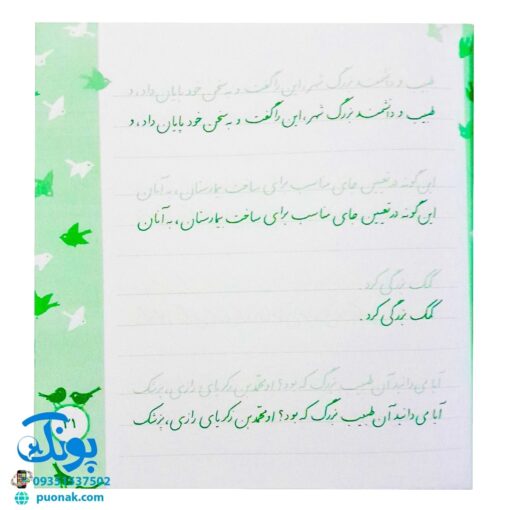 طبیب و دانشمند بزرگ شهر، این را گفت و به سخن خود پایان داد، و
طبیب و دانشمند بزرگ شهر، این را گفت و به سخن خود پایان داد، و
این گونه در تعیین جای مناسب برای ساخت بیمارستان، به آنان
این گونه در تعیین جای مناسب برای ساخت بیمارستان، به آنان
کمک بزرگی کرد.
کمک بزرگی کرد.
آیا می دانید آن طبیب بزرگ که بود؟ او محمّد بن زکریای رازی، پزشک
آیا می دانید آن طبیب بزرگ که بود؟ او محمّد بن زکریای رازی، پزشک
۲۱
پونک
puonak.com